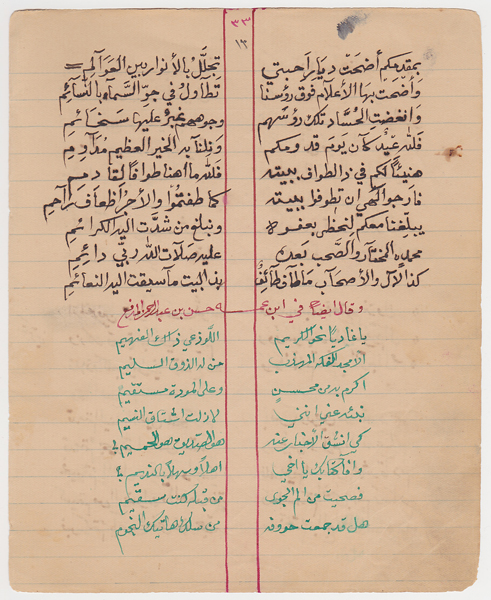 ٣٣
١٢
بمقدمكم أضحت ديار أحبتي تجلل بالأنوار بين العوالم
وأضحت بها الأعلام فوق رؤسنا تطاول في جو السماء بالنسائم
وانغضت الحساد تلك رؤسهم وجوههم غبر عليها سخائم
فلله عيد كان يوم قدومكم ونلنا به الخير العظيم مداوم
هنيئا لكم في ذا الطواف ببيته فلله ما أهنا طوافا لقادم
فارجو الهي ان تطوفوا ببيته كما طفتموا والأجر
يبلغنا معكم لنحظى بعفوه ونبلغ من شدت اليه الكرائم
محمد المختار والصحب بعده عليه صلات الله ربي دائم
كذا الآل والأصحاب ما طاف طائف بذا البيت ما سيقت اليه النعائم
وقال ايضا في ابن عمه حسن بن عبد الرحمن
يا غاديا نحو الكريم اللوذعي ذلك الفهيم
الامجد الفكه المهذب من له الذوق السليم
اكرم به من محسن وعلى المودة مستقيم
بلغه عني انني لا زلت اشتاق النسيم
كي انشق الاخبار عنه هو الصديق هو الحميم
وافا كتابك يا اخي اهلا وسهلا بالنديم
فصحيت من الم الجوى من قبله كنت سقيم
هل قد جمعت حروفه من سلك هاتيك النجوم